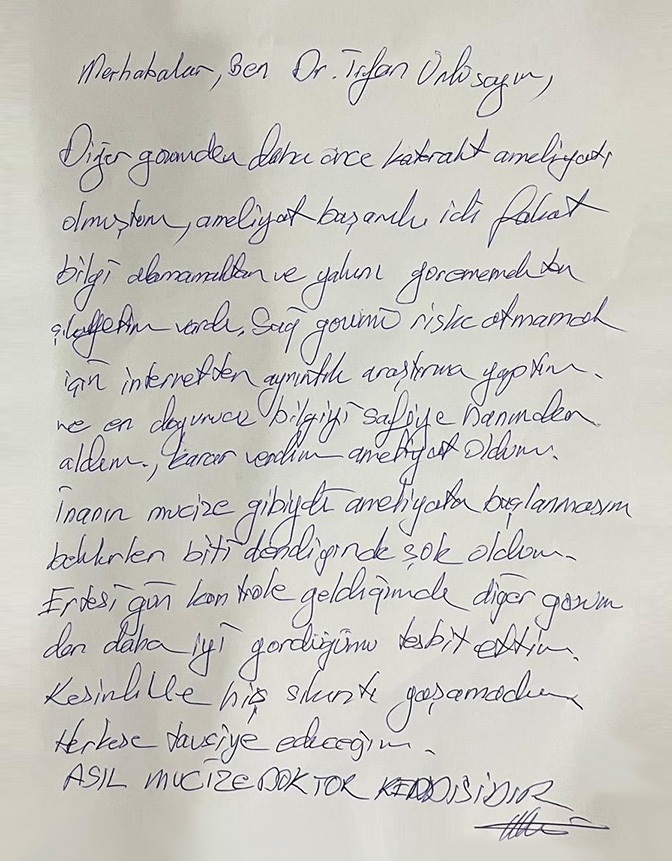 Merhabalar, Ben Dr. İrfan Ünlüsayın,
Diğer gözümden daha önce katarakt ameliyatı
olmuştum, ameliyat başarılı idi fakat
bilgi alamamaktan ve yakını görememekten
şikayetim vardı, Sağ gözümü riske atmamak
için internetten ayrıntılı araştırma yaptım.
ve en doyurucu bilgiyi Safiye Hanımdan
aldım., karar verdim ameliyat oldum.
İnanın mucize gibiydi ameliyata başlanmasını
beklerken bitti dendiğinde şok oldum.
Ertesi gün kontrole geldiğimde diğer gözüm
den daha iyi gördüğümü tesbit ettim.
Kesinlikle hiç sıkıntı yaşamadım
Herkese tavsiye edeceğim.
ASIL MUCİZE DOKTOR KENDİSİDİR